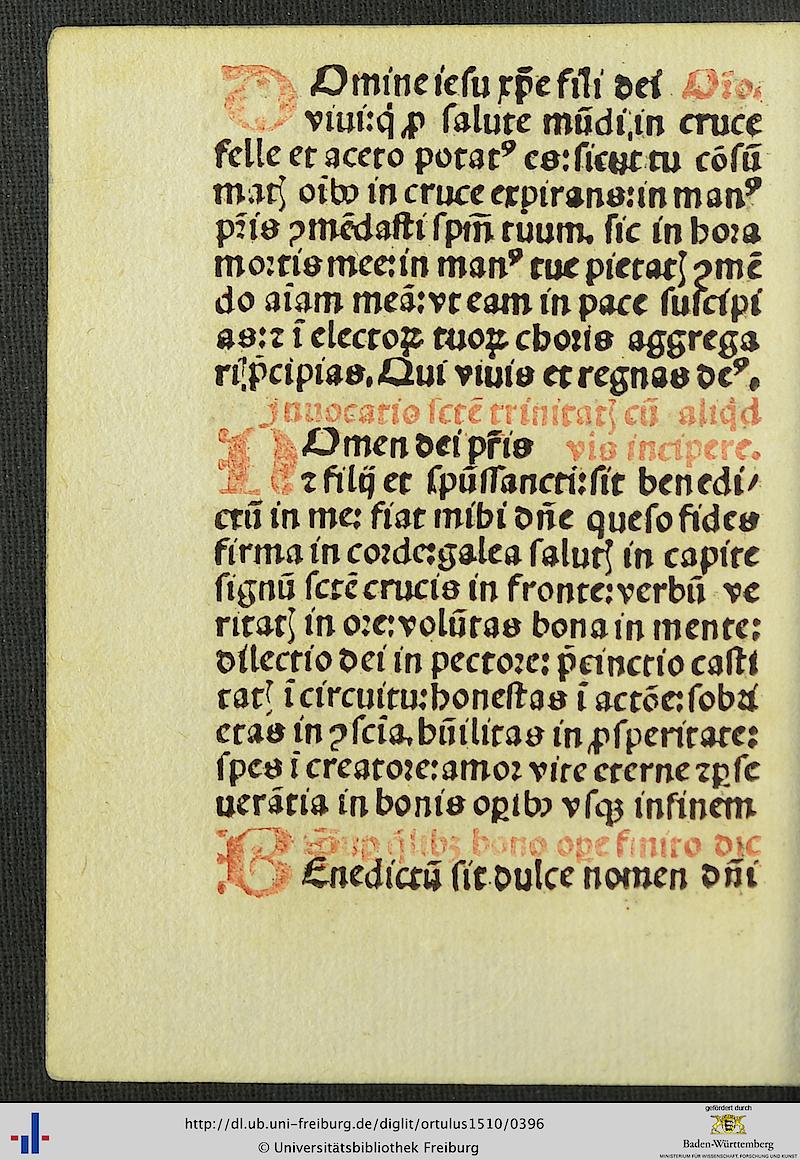 DOmine iesu xp̄e fili dei Or̄o.
viui: q̇ ꝓ salute mūdi, in cruce
felle et aceto potatꝰ es: sicut tu cōsū
matꝭ oīb⁹ in cruce expirans: in manꝰ
pr̄is ꝯmēdasti spm̄ tuum. sic in hora
mortis mee: in manꝰ tue pietatꝭ ꝯmē
do aīam meā: vt eam in pace suscipi
as: ⁊ ī electoꝝ tuoꝝ choris aggrega
ri p̄cipias. Qui viuis et regnas deꝰ.
Inuocatio scte trinitatꝭ cū aliqd
NOmen dei pr̄is vis incipere.
⁊ filij et spūssancti: sit benedi/
ctū in me: fiat mihi dn̄e queso fides
firma in corde: galea salutꝭ in capite
signū sctē crucis in fronte: verbū ve
ritatꝭ in ore: volūtas bona in mente:
dilectio dei in pectore: p̄cinctio casti
tatꝭ ī circuitu: honestas ī actōe: sobri
etas in ꝯscīa, hūilitas in ꝓsperitate:
spes ī creatore: amor vite eterne ⁊ ꝑse
uerātia in bonis oꝑibꝫ vsqꝫ in finem
Sup q̄libꝫ bono ope finito dic
BEnedictū sit dulce nomen dn̄i
http://dl.ub.uni-freiburg.de/diglit/ortulus1510/0396
© Universitätsbibliothek Freiburg
gefördert durch
Baden-Württemberg
MINISTERIUM FÜR WISSENSCHAFT, FORSCHUNG UND KUNST